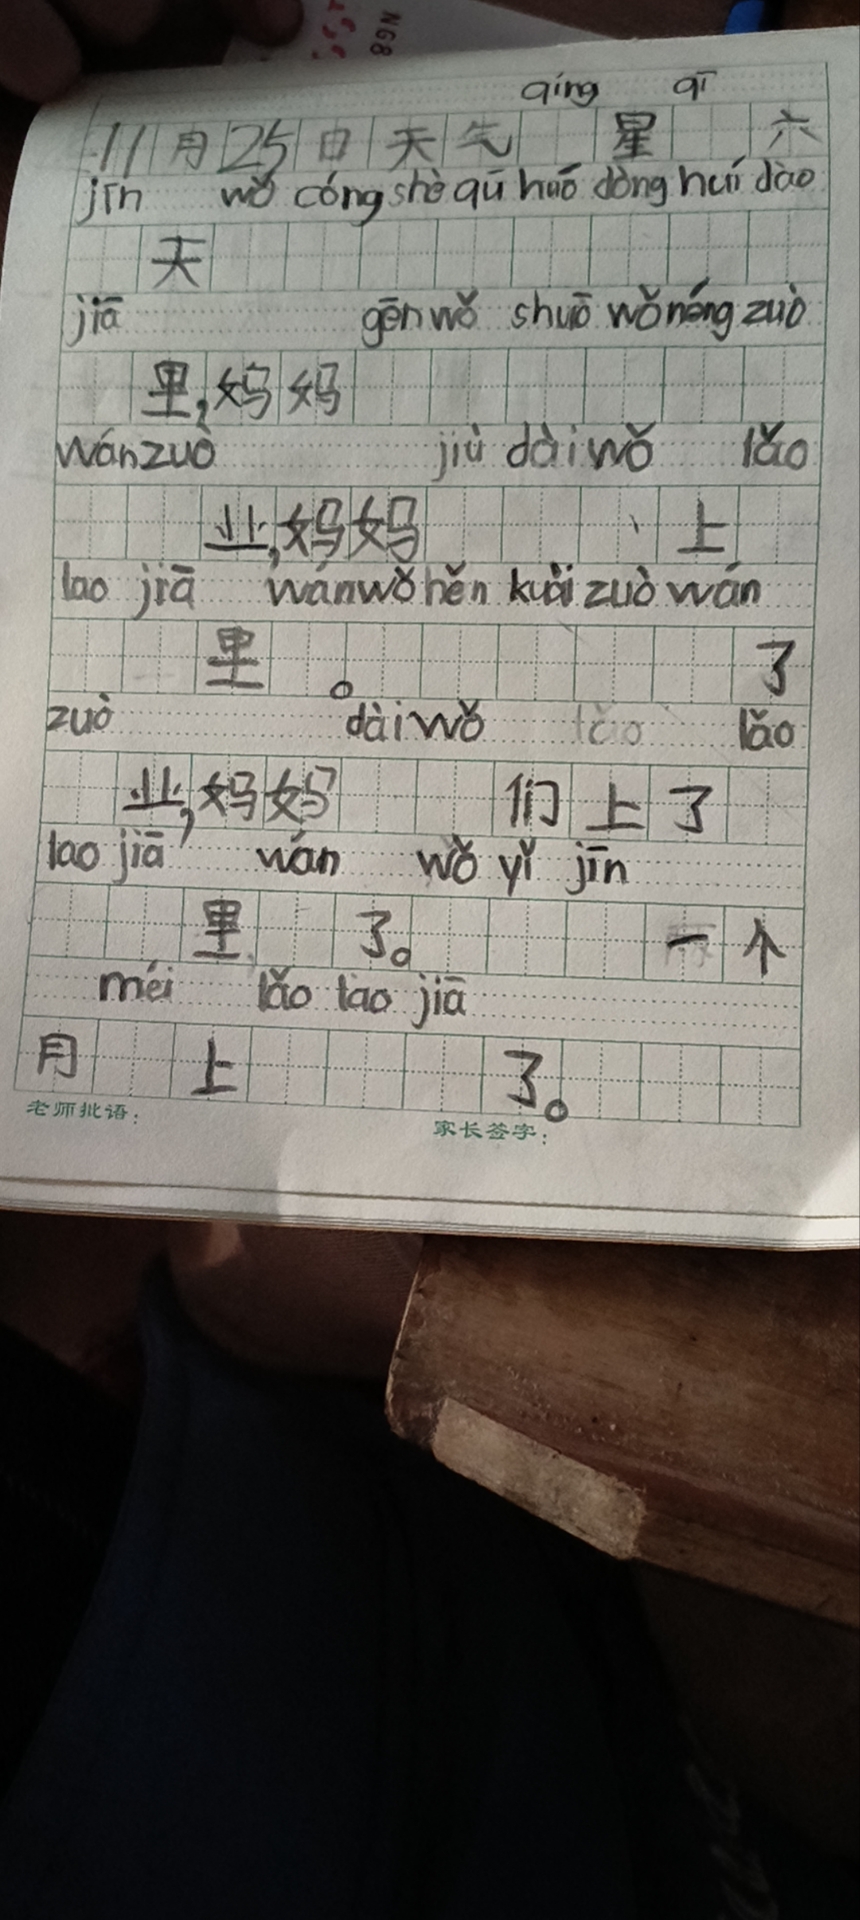 NG8
qíng qī
11月25日天气 星 六
jīn wǒ cóng shè qū huó dòng huí dào
天
jiā gēn wǒ shuō wǒ néng zuò
里,妈妈
wán zuò jiù dài wǒ lǎo
业,妈妈 上
lao jiā wán wǒ hěn kuài zuò wán
里 。 了
zuò dài wǒ lǎo lǎo
业,妈妈 们上了
lao jiā wán wǒ yǐ jīn
里 了。 一个
méi lǎo lao jiā
月 上 了。
老师批语:
家长签字: